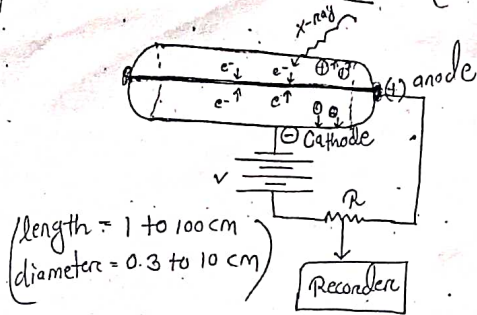 X-ray
e⁻ e⁻ ⊕ ⊕
(+) anode
e⁻ e⁻ ⊕ ⊕
⊖ Cathode
V
R
length = 1 to 100 cm
diameter = 0.3 to 10 cm
Recorder